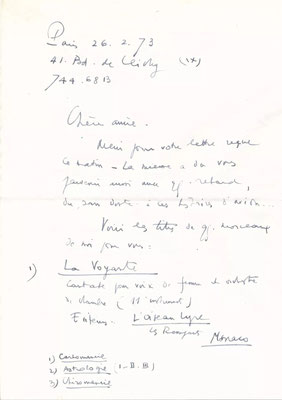 Paris 26.2.73
41. Bd. de Clichy (IX)
744.6813
Chère amie.
Merci pour votre lettre reçue
ce matin – La mienne a dû vous
parvenir aussi avec qq. retard,
dû sans doute à
Voici les titres de qq. morceaux
de moi pour vous:
1) La Voyante
Cantate pour voix de femme et orchestre
de chambre (11 instruments)
Editeur: L'oiseau Lyre
Les Remparts
Monaco
1) Cartomancie
2) Astrologie (I-II-III)
3) Chiromancie